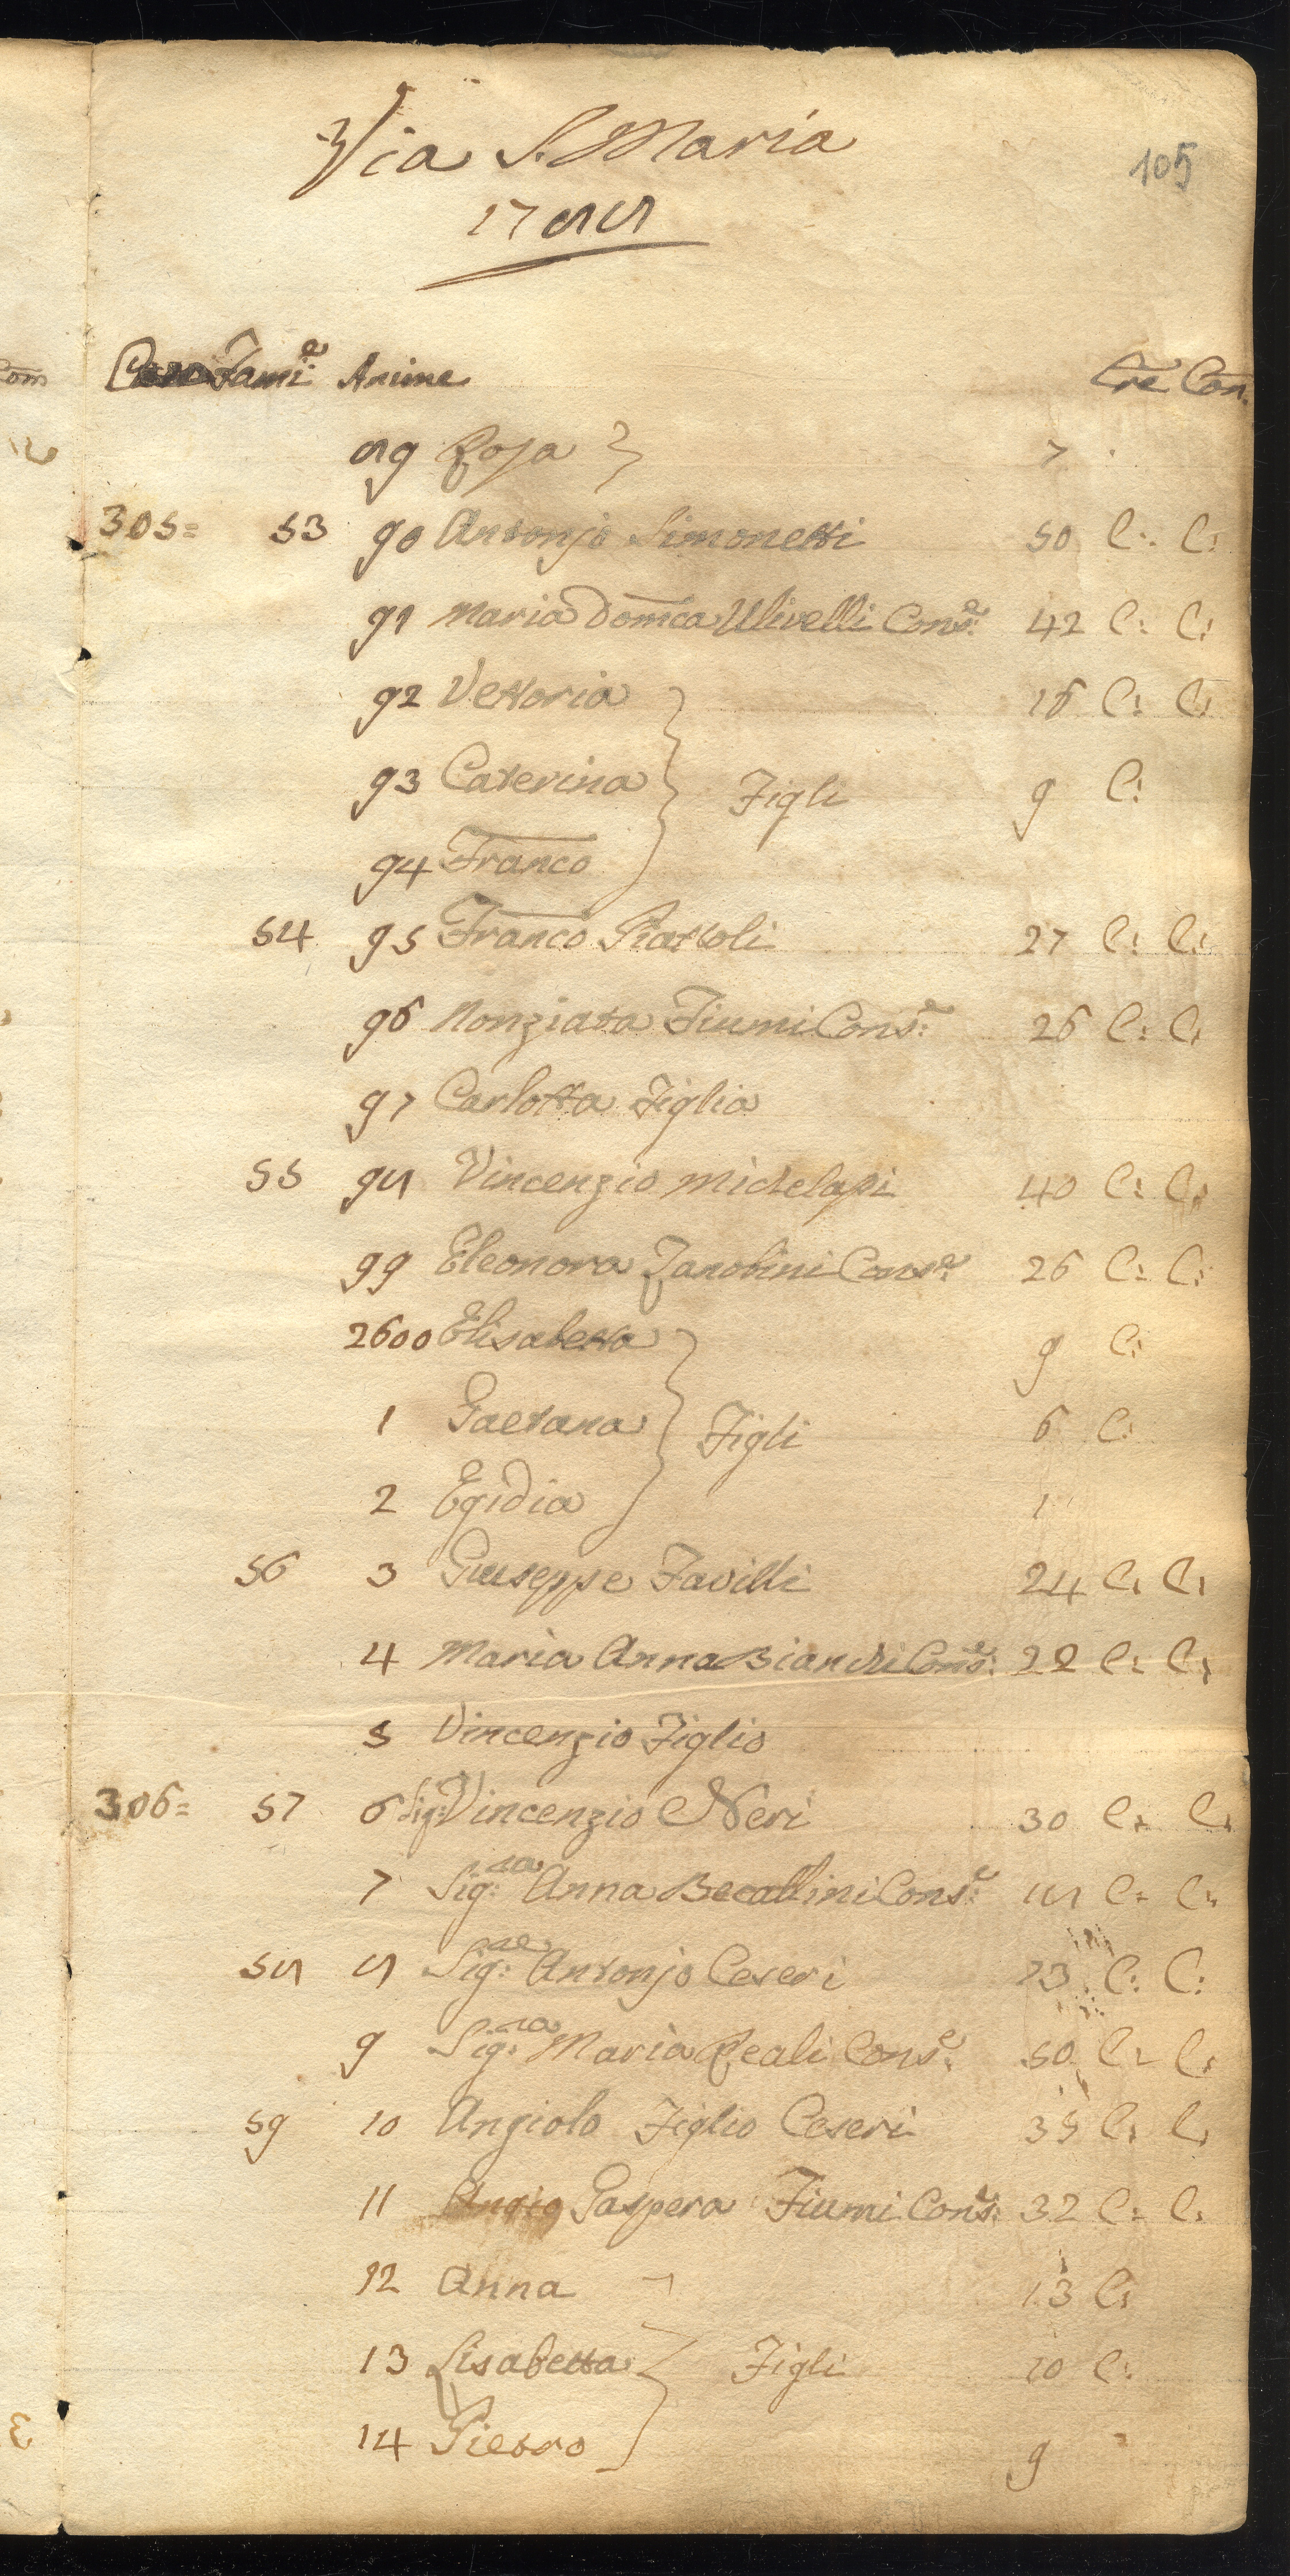 Via S. Maria
105
1788
Case Fami:e Anime Cre Con.
89 Rosa 7
305= 53 90 Antonjo Simonetti 50 C: C:
91 Maria Domca Ulivelli Cons:e 42 C: C:
92 Vettoria 16 C: C:
93 Caterina Figli 9 C:
94 Franco
54 95 Franco Piattoli 27 C: C:
96 Nonziata Fiumi Cons:e 26 C: C:
97 Carlotta Figlia
55 98 Vincenzio Michelassi 40 C: C:
99 Eleonora Zanobini Cons:e 26 C: C:
2600 Elisabetta 9 C:
1 Gaetana Figli 6 C:
2 Egidia 1
56 3 Giuseppe Favilli 24 C: C:
4 Maria Anna Bianchi Cons:e 22 C: C:
5 Vincenzio Figlio
306= 57 6 Sig: Vincenzio Neri 30 C: C:
7 Sig:ra Anna Becattini Cons:e 18 C: C:
58 8 Sig:re Antonjo Ceseri 73 C: C:
9 Sig:ra Maria Reali Cons:e 50 C: C:
59 10 Angiolo Figlio Ceseri 35 C: C:
11 Gaspera Fiumi Cons:e 32 C: C:
12 Anna 13 C:
13 Lisabetta Figli 10 C:
14 Pietro 9